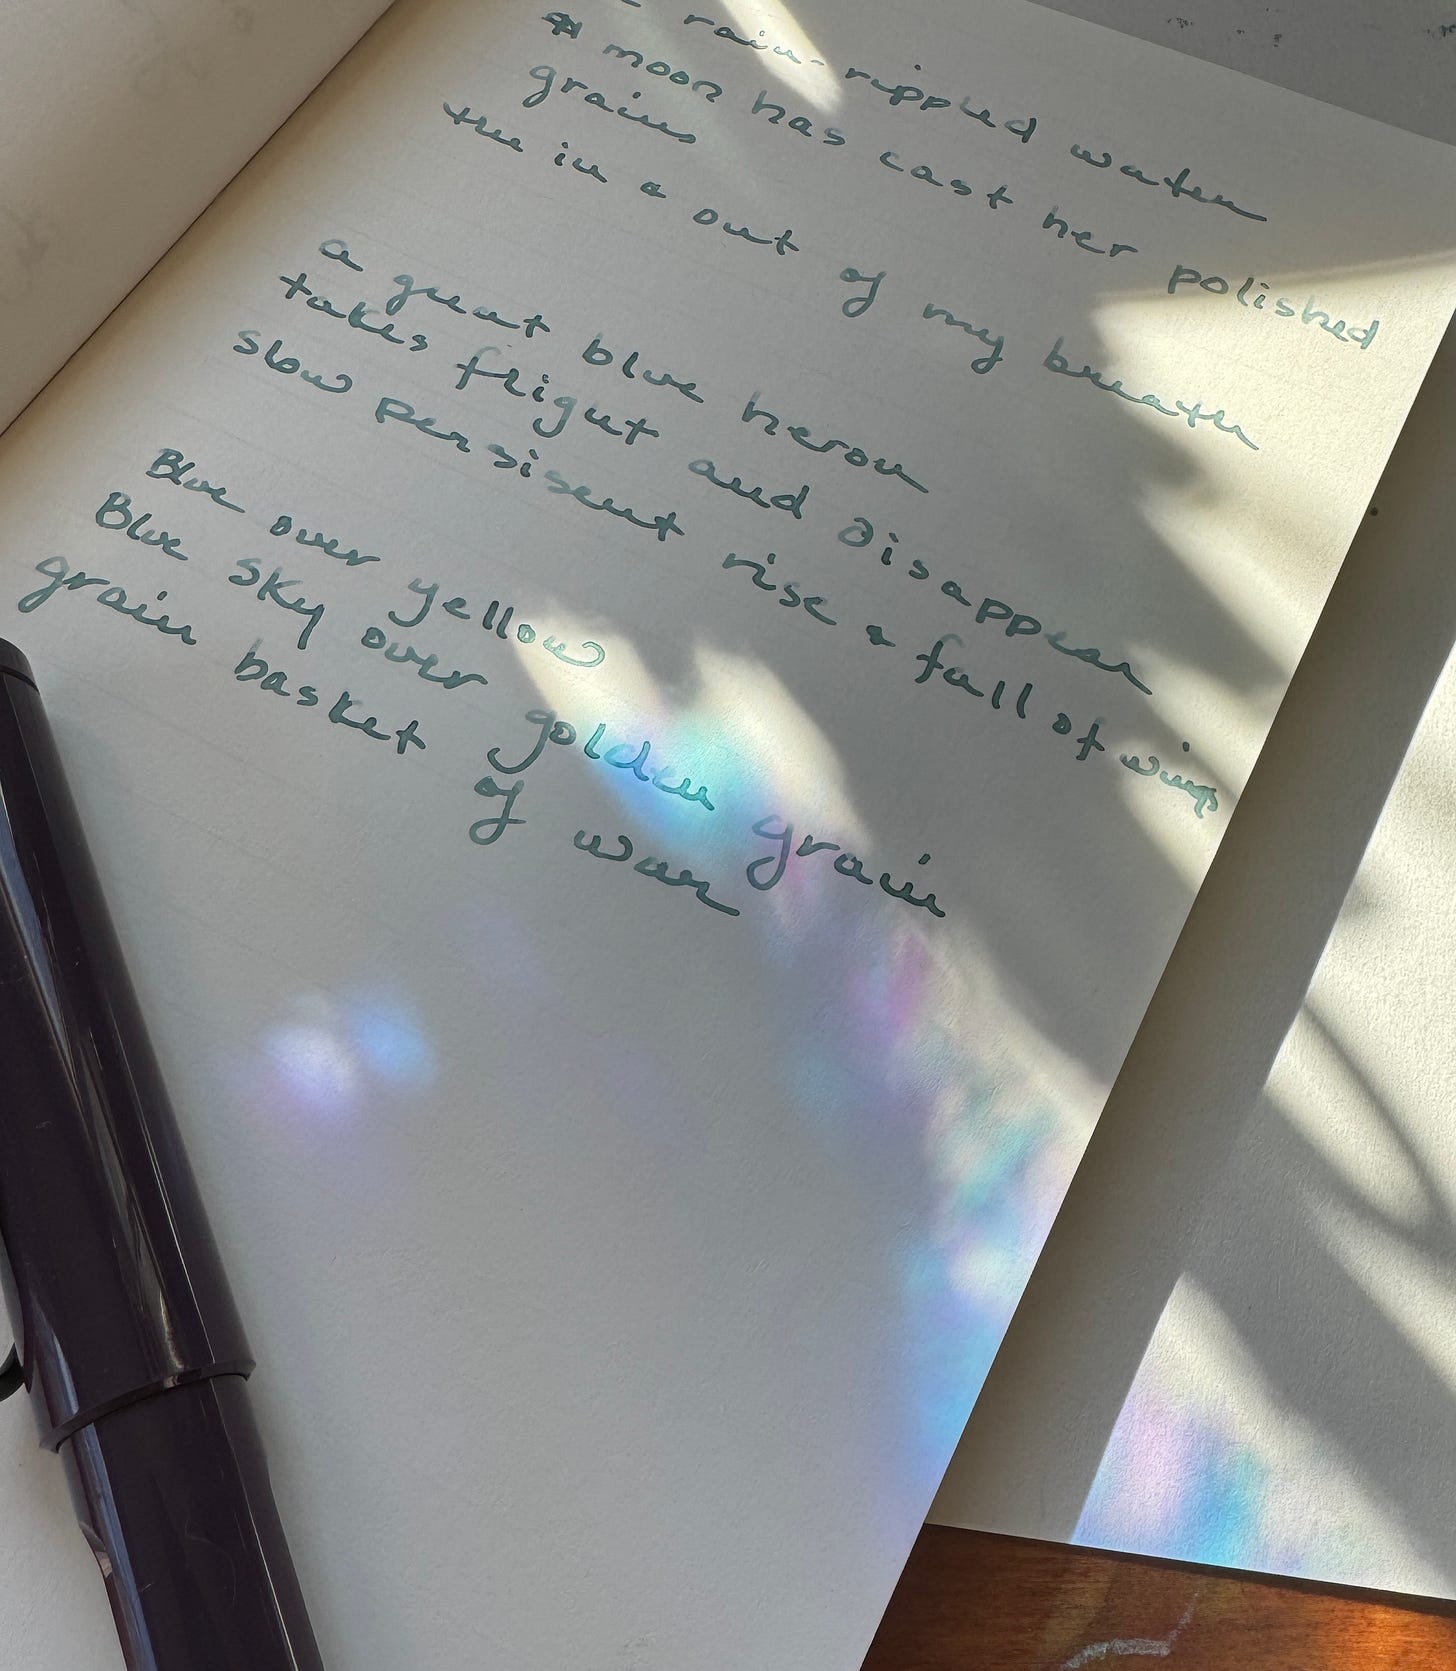 rain-rippled water
moon has cast her polished
grains
the in & out of my breath
a great blue heron
takes flight and disappear
slow persisent rise & fall of wings
Blue over yellow
Blue sky over golden grain
grain basket of war